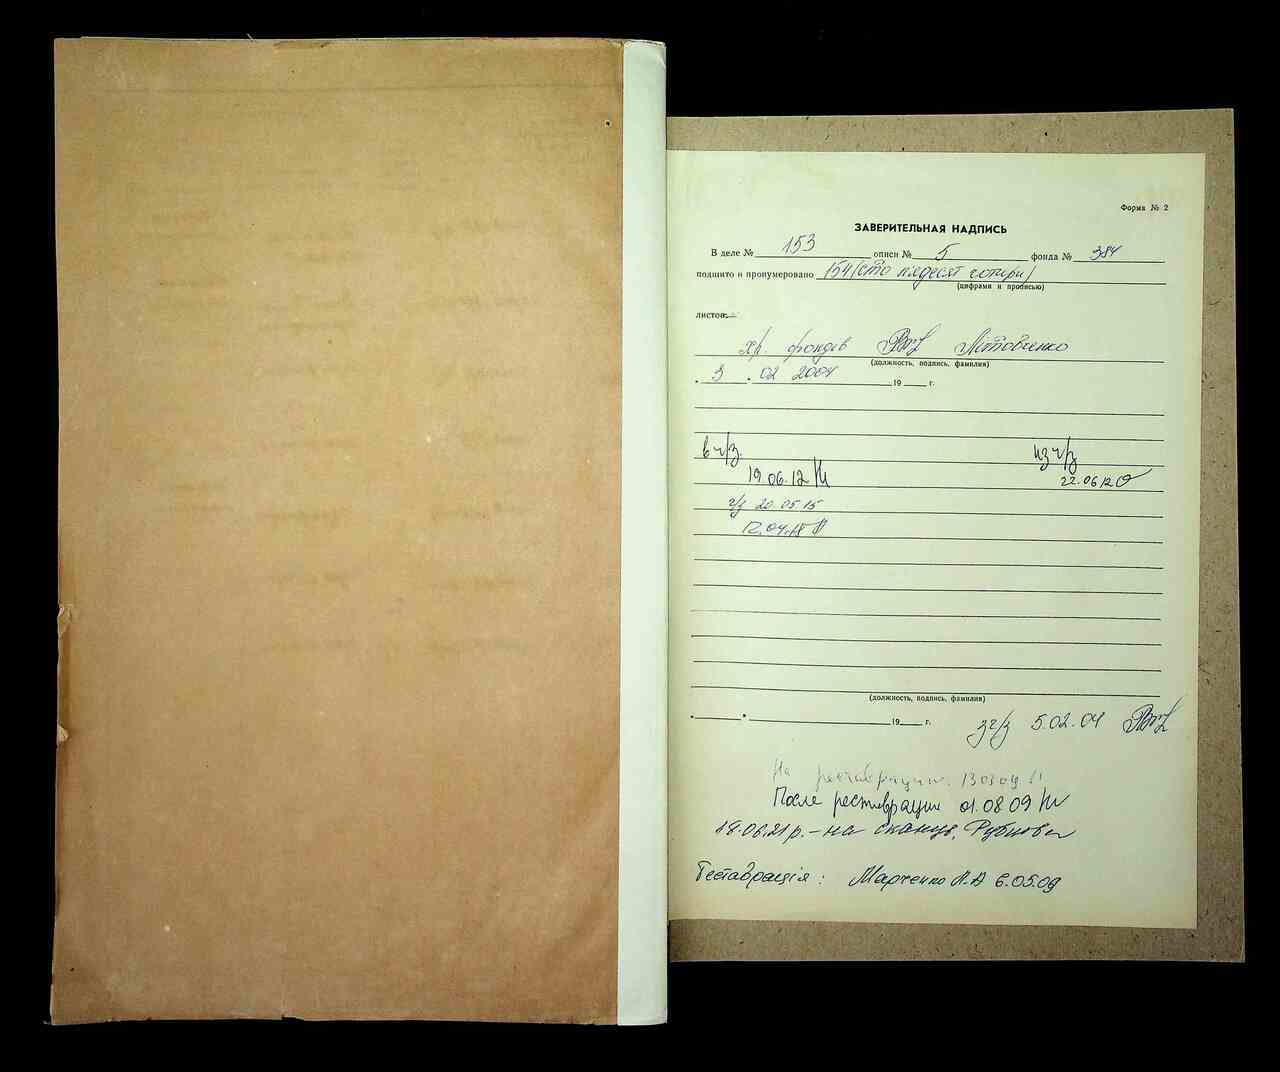 Форма № 2
ЗАВЕРИТЕЛЬНАЯ НАДПИСЬ
В деле № 153 описи № 5 фонда № 384
подшито и пронумеровано 154 (сто пядесят чотири)
(цифрами и прописью)
листов.
хр. фондів Літовченко
(должность, подпись, фамилия)
" 3 " 02 2004 19 г.
в ч/з из ч/з
19.06.12 22.06.12
ч/з 20 05 15
12.04.18
(должность, подпись, фамилия)
" " 19 г.
з ч/з 5.02.04
На реставрацию 13 03 09
После реставрации 01.08.09
18.06.21 р. - на сканув.
Реставрація: Марченко Н.А 6.05.09